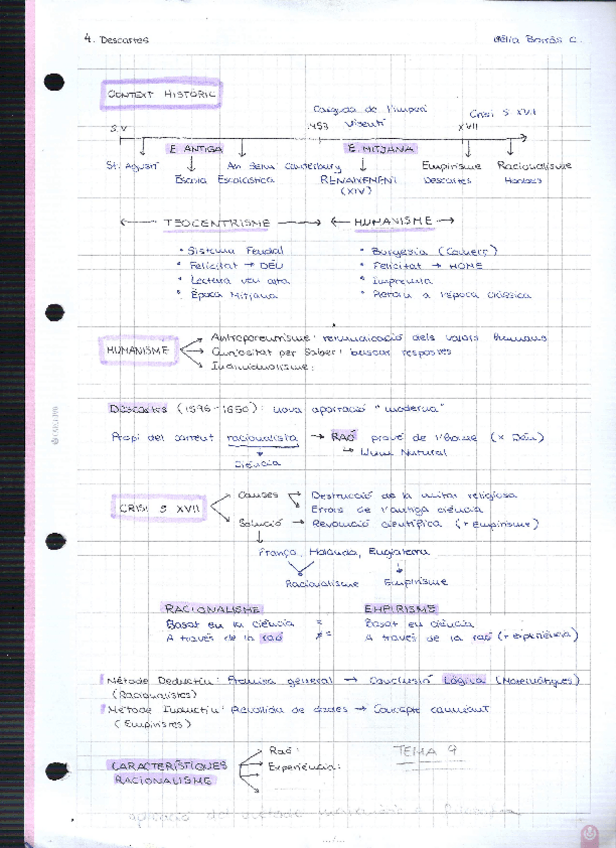 4. Descartes
CONTEXT HISTÒRIC
Crisi S XVII
S.V 1453 XVII
E. ANTIGA E. MITJANA
St. Agustí Canterbury Empirisme Racionalisme
Escola Escolàstica RENAIXEMENT Descartes
(XIV)
TEOCENTRISME HUMANISME
• Sistema Feudal • Burgesia (Comerç)
• Felicitat → DÉU • Felicitat → HOME
• Lectura veu alta • Impremta
• Època Mitjana a l'època clàssica
HUMANISME
Antropocentrisme: dels valors humans
Curiositat per Saber: buscar respostes
Individualisme:
Descartes (1596-1650): nova aportació "moderna"
Propi del corrent racionalista → RAÓ prové de l'home (x Déu)
↳ Llum Natural
Ciència
CRISI S XVII
Causes Destrucció de la unitat religiosa
Errors de l'antiga ciència
Solució → Revolució científica (+ Empirisme)
França, Holanda, Englaterra
Racionalisme Empirisme
RACIONALISME EMPIRISME
Basat en la ciència = Basat en ciència
A través de la raó ≠ A través de la raó (+ experiència)
Mètode Deductiu: Premisa general → Conclusió Lògica (Matemàtiques)
(Racionalistes)
Mètode Inductiu: Recollida de dades → Concepte
(Empiristes)
CARACTERÍSTIQUES
RACIONALISME
Raó: TEMA 9
Experiència: